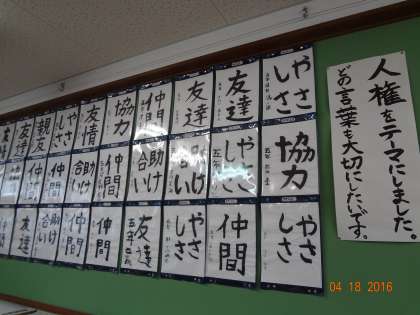 人権をテーマにしました。
どの言葉も大切にしたいです。
やさしさ
友達
友達
仲間
協力
友情
やさしさ
親友
友達
協力
やさしさ
助け合い
助け合い
仲間
助け合い
仲間
仲間
やさしさ
仲間
やさしさ
友達
仲間
仲間
助け合い
友達
04 18 2016